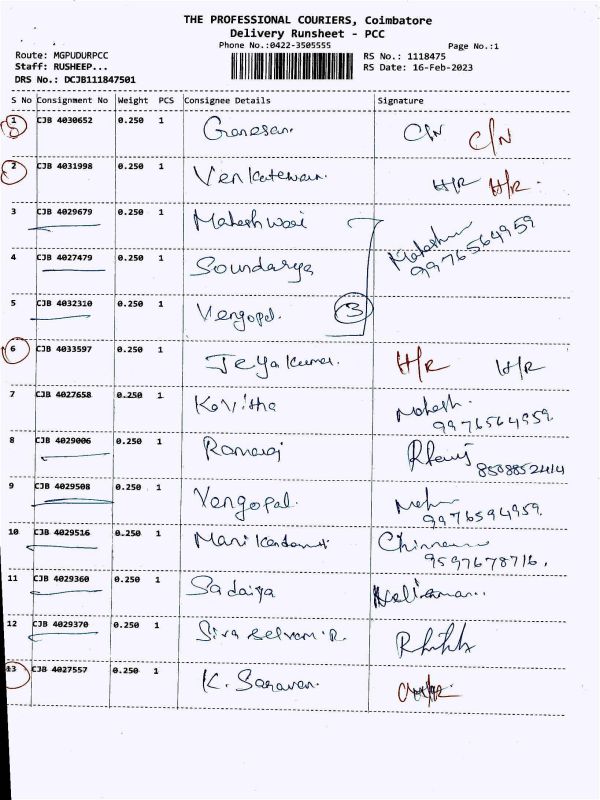 THE PROFESSIONAL COURIERS, Coimbatore
Delivery Runsheet - PCC
Phone No.:0422-3505555 Page No.:1
Route: MGPUDURPCC RS No.: 1118475
Staff: RUSHEEP... RS Date: 16-Feb-2023
DRS No.: DCJB111847501
S No Consignment No Weight PCS Consignee Details Signature
1 CJB 4030652 0.250 1 Ganesan. C/N C/N
2 CJB 4031998 0.250 1 H/R H/R.
3 CJB 4029679 0.250 1 Maheshwari
99765 64959
4 CJB 4027479 0.250 1 Soundarya
5 CJB 4032310 0.250 1 Vengopal. 3
6 CJB 4033597 0.250 1 Jeyakumar. H/R H/R
7 CJB 4027658 0.250 1 Kavitha Mahesh.
9976564959.
8 CJB 4029006 0.250 1 Ramaraj
9 CJB 4029508 0.250 1 Vengopal.
9976594959.
10 CJB 4029516 0.250 1
9597678716.
11 CJB 4029360 0.250 1 Sadaiya
12 CJB 4029370 0.250 1 Siva Selvam.R.
13 CJB 4027557 0.250 1 K. Saravan.